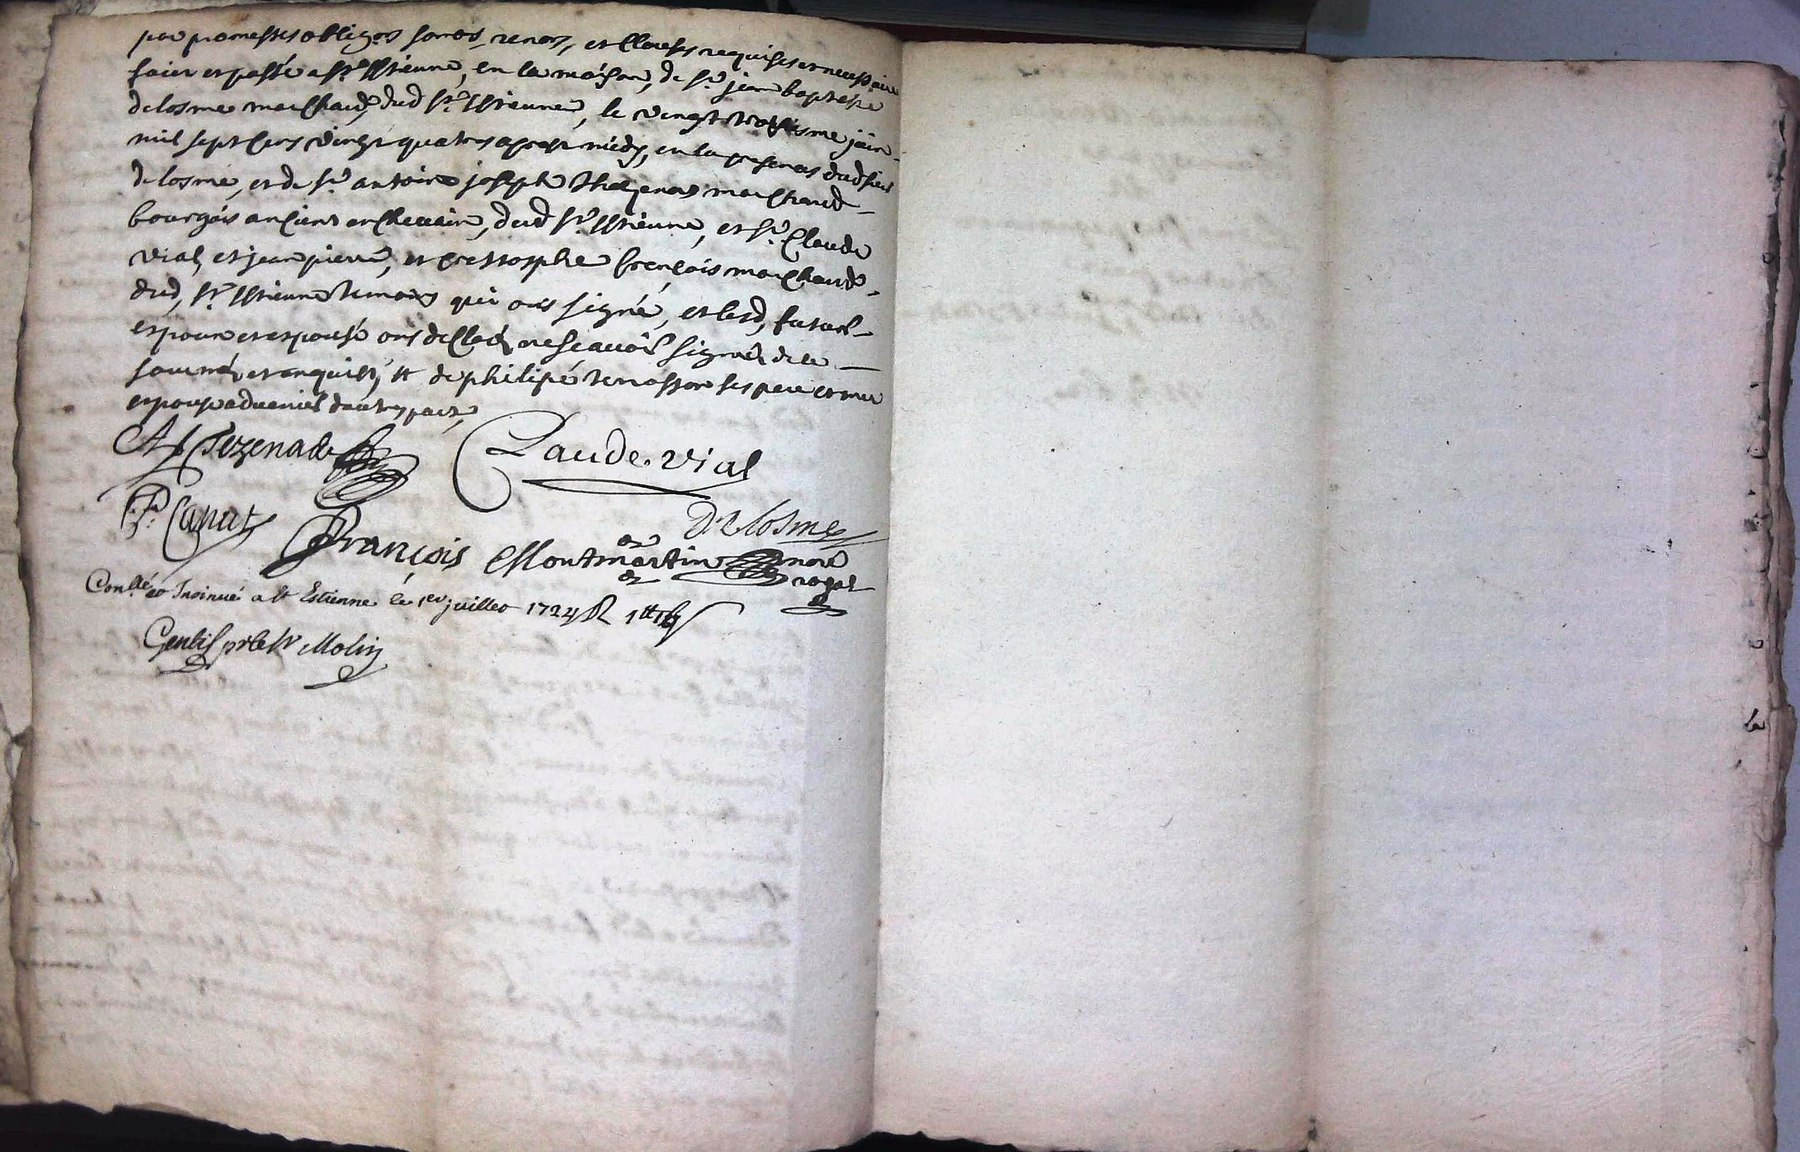 par promesses obligõns sermõs, renõns, et clauses requises et necessaires
faict et passé a St Estienne, en la maison, de sr jean baptiste
delosme marchand, dud St Estienne, le vingt troisiesme juin
mil sept cens vingt quattres apres midy, en la presence dud sieur
delosme, et de sr antoine joseph Thezenas marchand
bourgois ancient eschevain, dud St Estienne, et sr Claude
vial, et jean pierre, et francois marchand
dud, St Estienne temoins qui ont signé, et lesd, futurs
espoux et espouse ont declaré ne scavoir signer de ce
sommés et enquis, de philipé terrasson ses pere et mere
espouse d'autre part,
AJ Tezenas Claude. Vial
Capat Delosme
François Montmartin nore
royal
Conllé et Insinué a St Estienne le 1er juillet 1724 R
Gentil pr le sr Molin